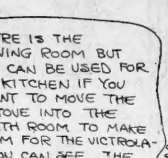 RE IS THE
ING ROOM BUT
CAN BE USED FOR
KITCHEN IF YOU
NT TO MOVE THE
OVE INTO THE
TH ROOM TO MAKE
M FOR THE VICTROLA-
OU CAN SEE THE